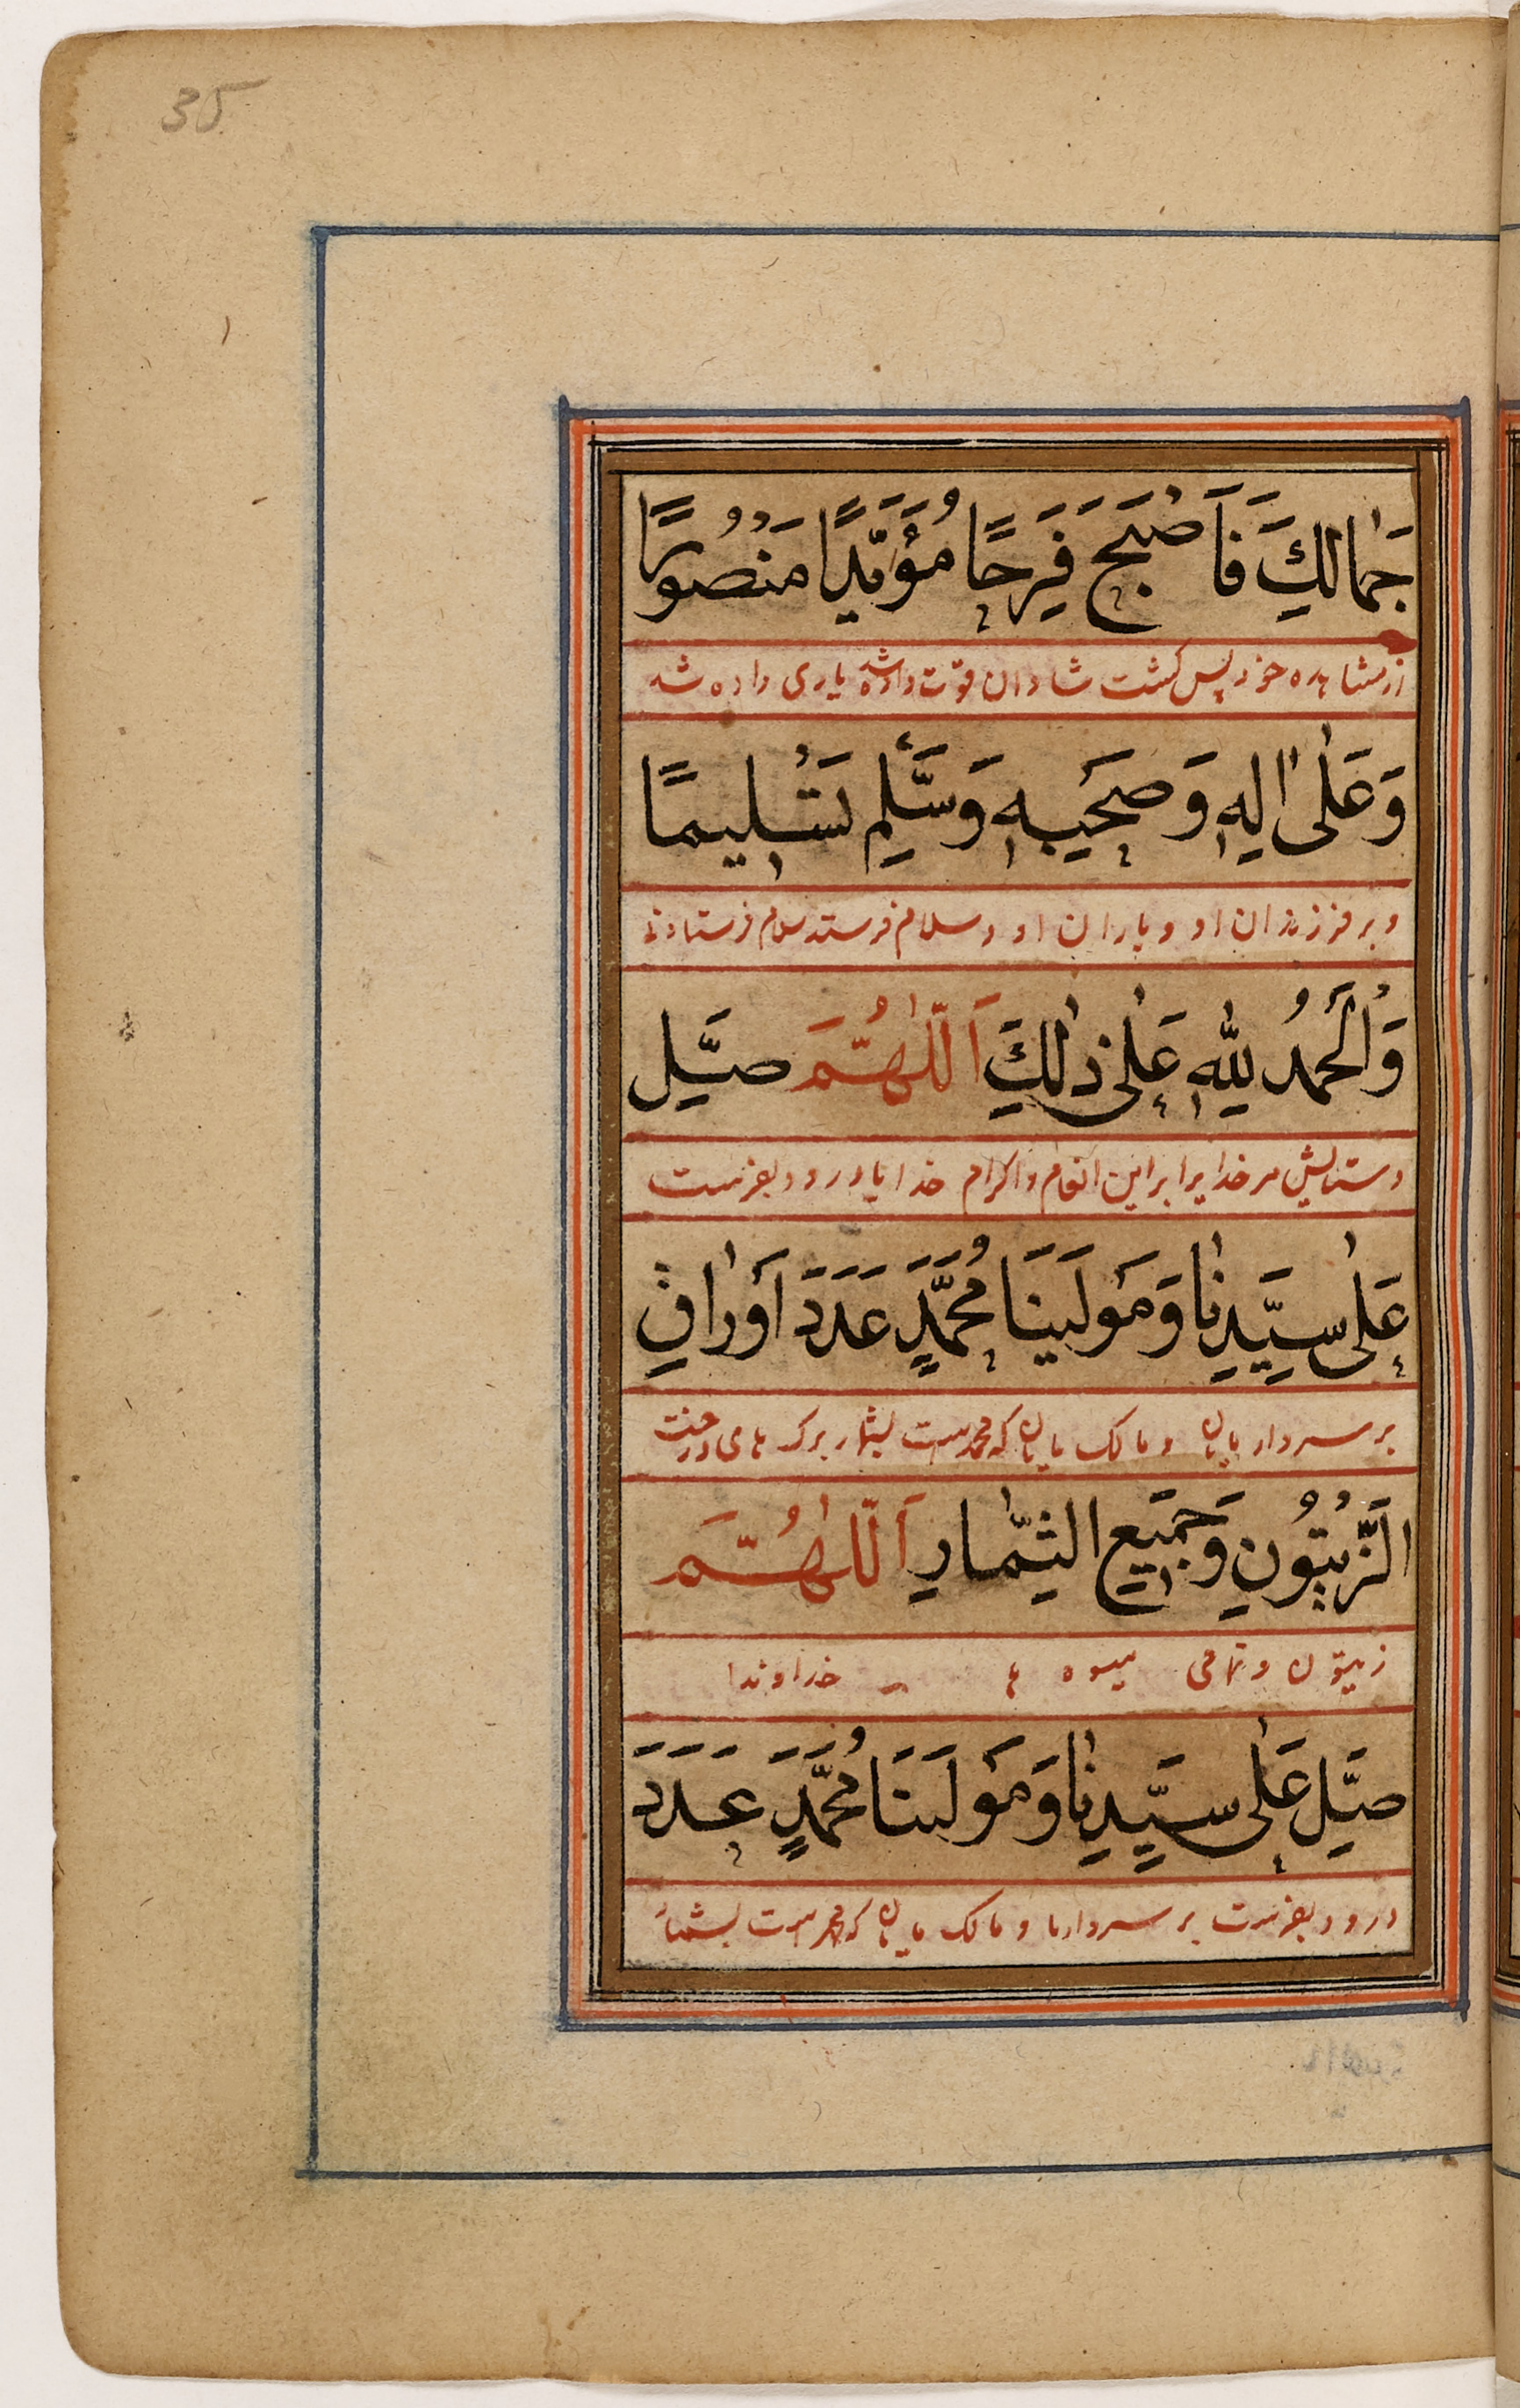 35
جَمَالِكَ فَاَصْبَحَ فَرِحًا مُؤَيَّدًا مَنْصُورًا
از مشاهده خود پس گشت شادان قوت داده شده یاری داده شد
وَعَلٰی اٰلِهٖ وَصَحْبِهٖ وَسَلِّمْ تَسْلِيمًا
و بر فرزندان او و یاران او و سلام فرستد سلام فرستادنی
وَالْحَمْدُ لِلّٰهِ عَلٰی ذٰلِكَ اَللّٰهُمَّ صَلِّ
و ستایش مر خدایرا براین انعام و اکرام خدایا درود بفرست
عَلٰی سَيِّدِنَا وَمَوْلٰينَا مُحَمَّدٍ عَدَدَ اَوْرَاقِ
بر سردار مایان و مالک مایان که محمدست بشمار برگ های درخت
الزَّيْتُونِ وَجَمِيعِ الثِّمَارِ اَللّٰهُمَّ
زیتون و تمامی میوه ها خداوندا
صَلِّ عَلٰی سَيِّدِنَا وَمَوْلٰينَا مُحَمَّدٍ عَدَدَ
درود بفرست بر سردار ما و مالک مایان که محمدست بشمار